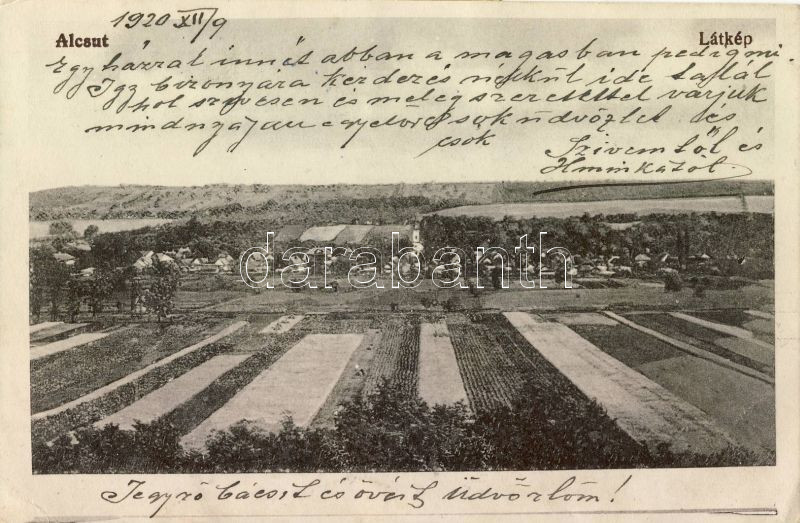 1920 XII/9
Alcsut
Látkép
Egy házzal innét abban a magasban pedig mi.
Igy bizonyára kérdezés nélkül ide talál
hol szivesen és meleg szeretettel várjuk
mindnyájan egyelőre sok üdvözlet és
csók
Szivemtől és
darabanth
Jegyző bácsit és övéit üdvözlöm!